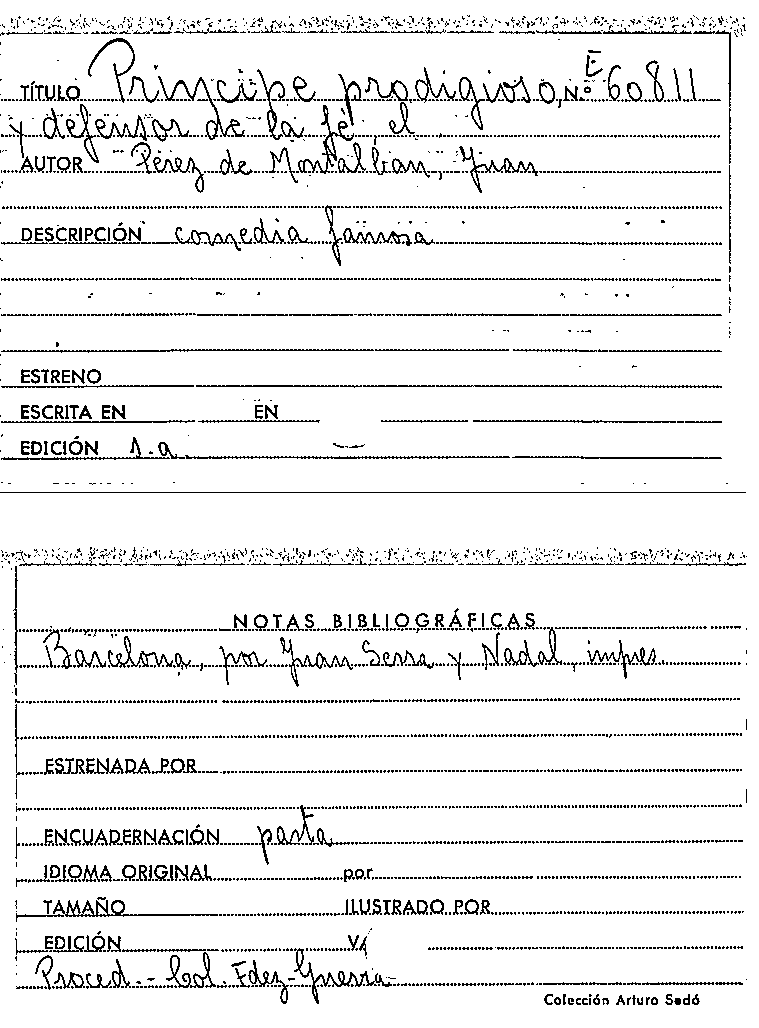 TÍTULO Principe prodigioso, N.º E 60811
y defensor de la fé, el
AUTOR Pérez de Montalban, Juan
DESCRIPCIÓN comedia famosa
ESTRENO
ESCRITA EN EN
EDICIÓN s.a.
NOTAS BIBLIOGRÁFICAS
Barcelona, por Juan Serra y Nadal, impres.
ESTRENADA POR
ENCUADERNACIÓN pasta
IDIOMA ORIGINAL por
TAMAÑO ILUSTRADO POR
EDICIÓN
Proced.- Col. Fdez-Guerra
Colección Arturo Sedó